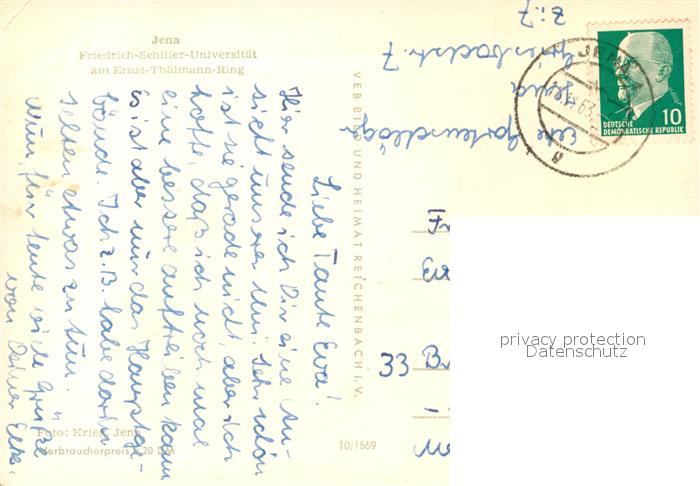 Jena
Friedrich-Schiller-Universität
am Ernst-Thälmann-Ring
Liebe Tante Eva!
Hier sende ich Dir eine An-
sicht unserer Uni. Sehr schön
ist sie gerade nicht, aber ich
hoffe, daß ich noch mal
eine bessere auftreiben kann
Es ist aber nur das Hauptge-
bäude. Ich z.B. habe darin
selten etwas zu tun.
Nun, für heute viele Grüße
von Deiner Elke.
Foto: Krieg, Jena
Verbraucherpreis 0,20 DM
10/1669
VEB BILD UND HEIMAT REICHENBACH i. V.
Elke
Jena
7
Z: 7
JENA
DEUTSCHE
DEMOKRATISCHE REPUBLIK
10
Fr
33 Br
privacy protection
Datenschutz